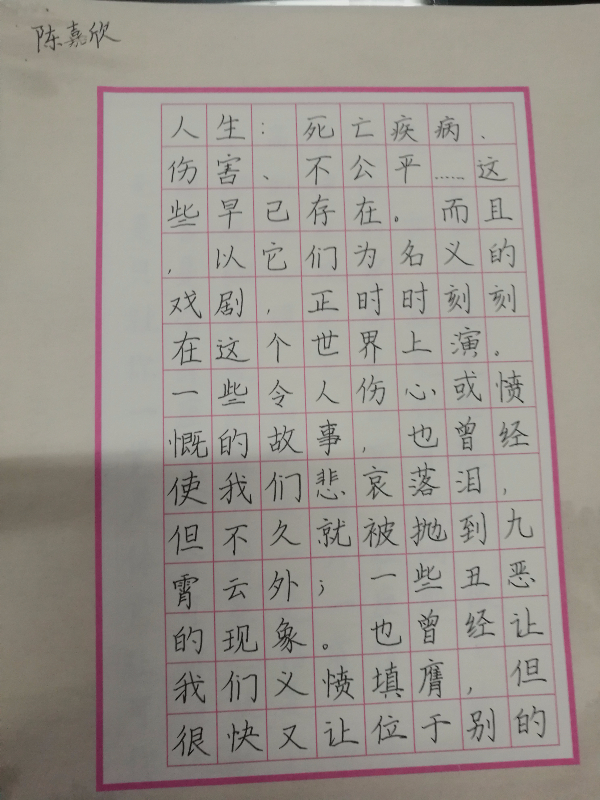 陈嘉欣
人生：死亡疾病、
伤害、不公平……这
些早已存在。而且
，以它们为名义的
戏剧，正时时刻刻
在这个世界上演。
一些令人伤心或愤
慨的故事，也曾经
使我们悲哀落泪，
但不久就被抛到九
霄云外；一些丑恶
的现象。也曾经让
我们义愤填膺，但
很快又让位于别的